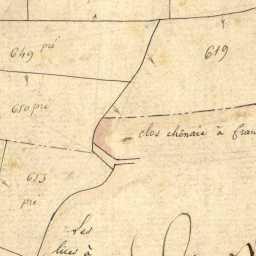 649 pré
619
610 pré
clos chênaie à fran
613
pré
Les